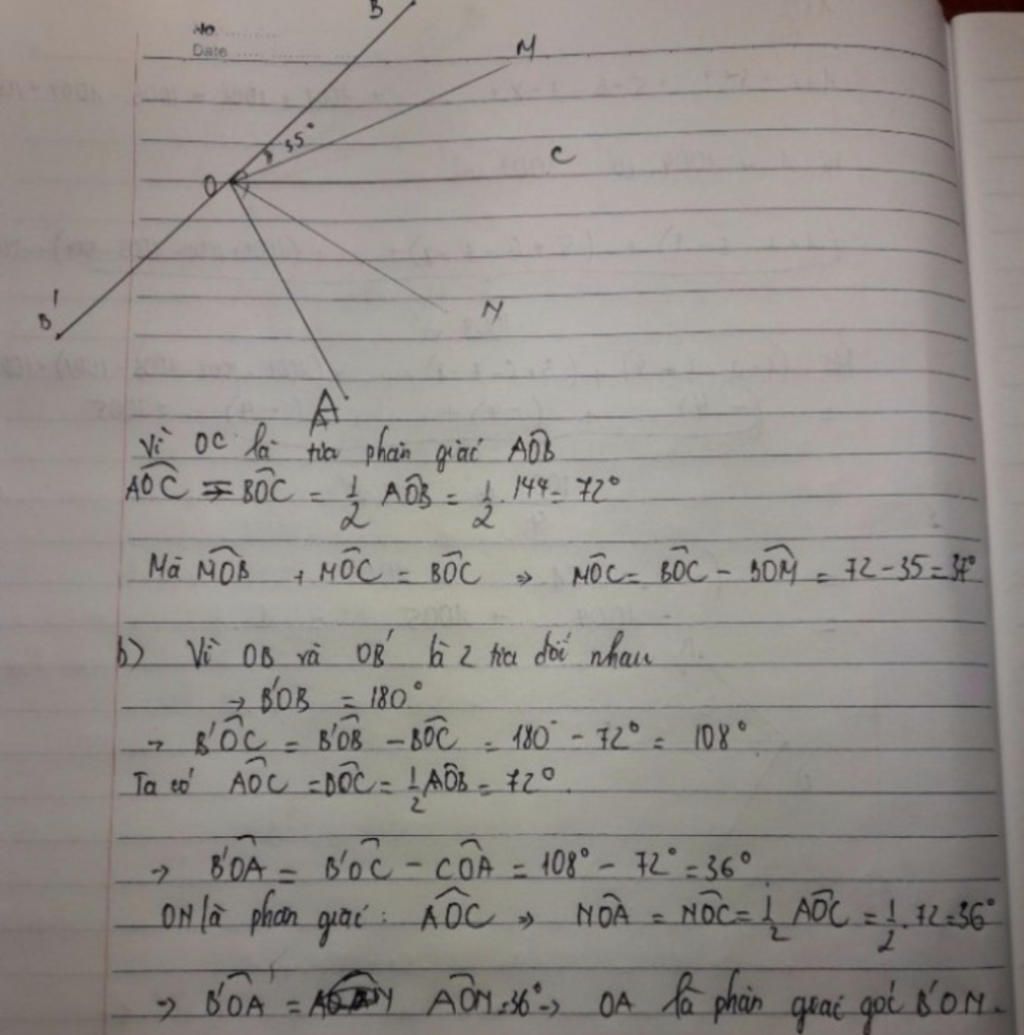 No.
Date
B
M
35°
C
O
N
B'
A
Vì OC là tia phân giác AÔB
AÔC = BÔC = 1/2 AÔB = 1/2 . 144 = 72°
Mà MÔB + MÔC = BÔC ⇒ MÔC = BÔC - BÔM = 72 - 35 = 37°
b) Vì OB và OB' là 2 tia đối nhau
→ B'OB = 180°
→ B'ÔC = B'ÔB - BÔC = 180° - 72° = 108°
Ta có AÔC = BÔC = 1/2 AÔB = 72°.
→ B'ÔA = B'ÔC - CÔA = 108° - 72° = 36°
ON là phân giác : AÔC ⇒ NÔA = NÔC = 1/2 AÔC = 1/2 . 72 = 36°
→ B'ÔA = AÔN = 36° → OA là phân giác góc B'ON.